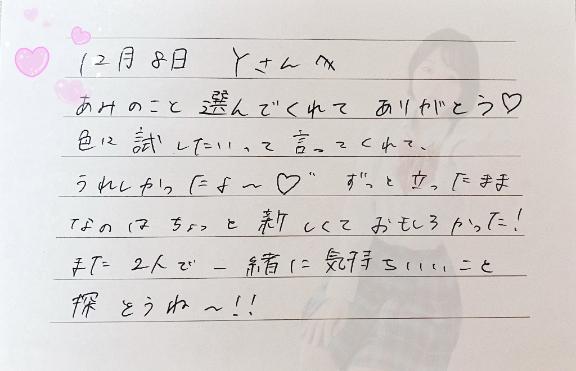 12月8日 Yさんへ
あみのこと 選んでくれて ありがとう♡
色に 試したいって 言ってくれて、
うれしかったよ〜♡゛ ずっと 立ったまま
なのは ちょっと 新しくて おもしろかった!
また 2人で 一緒に 気持ちいいこと
探そうね〜!!